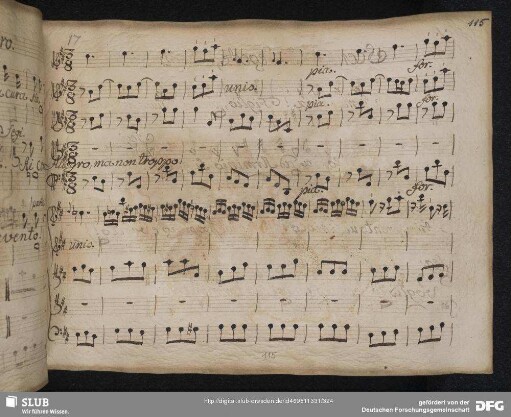 115
17
pia.
for.
unis.
pia.
for.
Allegro, ma non troppo
pia.
for.
unis.
vento.
115
SLUB
Wir führen Wissen.
http://digital.slub-dresden.de/id469611331/324
gefördert von der
Deutschen Forschungsgemeinschaft
DFG